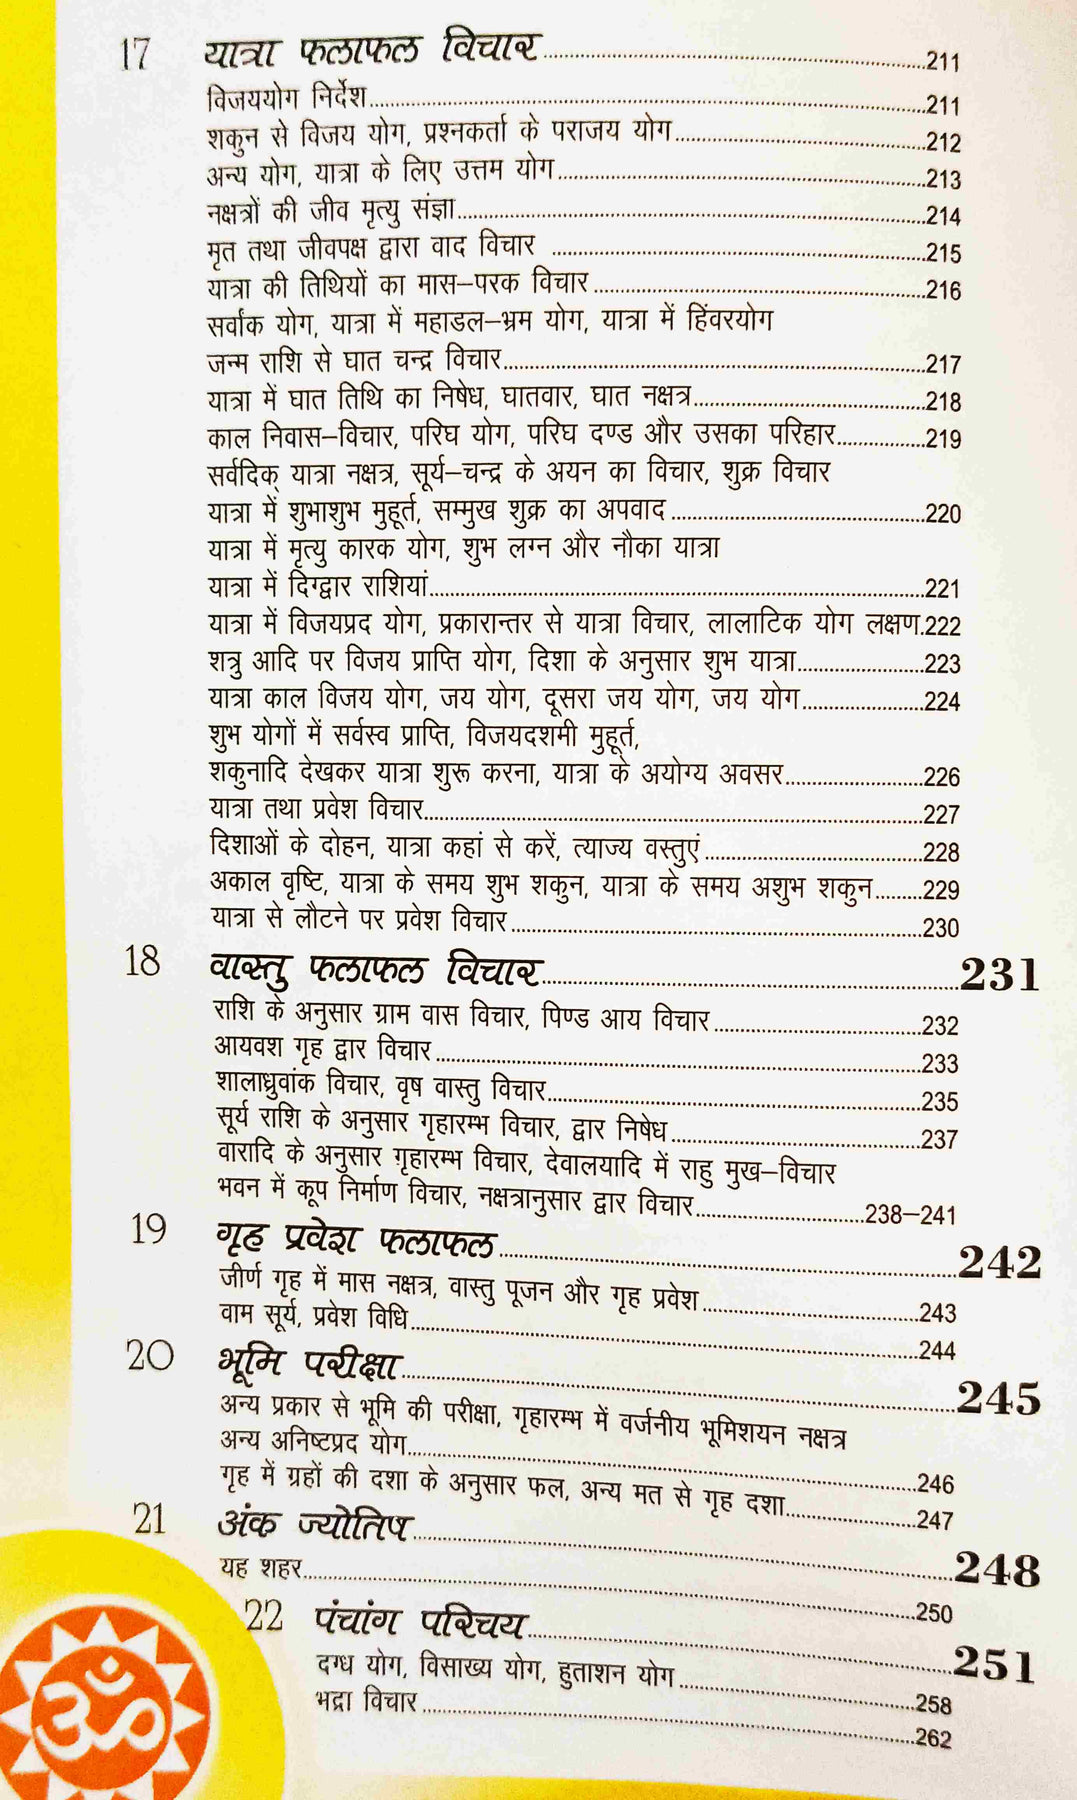 17 यात्रा फलाफल विचार...211
विजययोग निर्देश...211
शकुन से विजय योग, प्रश्नकर्ता के पराजय योग...212
अन्य योग, यात्रा के लिए उत्तम योग...213
नक्षत्रों की जीव मृत्यु संज्ञा...214
मृत तथा जीवपक्ष द्वारा वाद विचार ...215
यात्रा की तिथियों का मास–परक विचार...216
सर्वांक योग, यात्रा में महाडल–भ्रम योग, यात्रा में हिंवरयोग
जन्म राशि से घात चन्द्र विचार...217
यात्रा में घात तिथि का निषेध, घातवार, घात नक्षत्र...218
काल निवास–विचार, परिघ योग, परिघ दण्ड और उसका परिहार...219
सर्वदिक् यात्रा नक्षत्र, सूर्य–चन्द्र के अयन का विचार, शुक्र विचार
यात्रा में शुभाशुभ मुहूर्त, सम्मुख शुक्र का अपवाद...220
यात्रा में मृत्यु कारक योग, शुभ लग्न और नौका यात्रा
यात्रा में दिग्द्वार राशियां...221
यात्रा में विजयप्रद योग, प्रकारान्तर से यात्रा विचार, लालाटिक योग लक्षण.222
शत्रु आदि पर विजय प्राप्ति योग, दिशा के अनुसार शुभ यात्रा...223
यात्रा काल विजय योग, जय योग, दूसरा जय योग, जय योग...224
शुभ योगों में सर्वस्व प्राप्ति, विजयदशमी मुहूर्त,
शकुनादि देखकर यात्रा शुरू करना, यात्रा के अयोग्य अवसर...226
यात्रा तथा प्रवेश विचार...227
दिशाओं के दोहन, यात्रा कहां से करें, त्याज्य वस्तुएं...228
अकाल वृष्टि, यात्रा के समय शुभ शकुन, यात्रा के समय अशुभ शकुन...229
यात्रा से लौटने पर प्रवेश विचार...230
18 वास्तु फलाफल विचार...231
राशि के अनुसार ग्राम वास विचार, पिण्ड आय विचार...232
आयवश गृह द्वार विचार...233
शालाध्रुवांक विचार, वृष वास्तु विचार...235
सूर्य राशि के अनुसार गृहारम्भ विचार, द्वार निषेध...237
वारादि के अनुसार गृहारम्भ विचार, देवालयादि में राहु मुख–विचार
भवन में कूप निर्माण विचार, नक्षत्रानुसार द्वार विचार...238–241
19 गृह प्रवेश फलाफल...242
जीर्ण गृह में मास नक्षत्र, वास्तु पूजन और गृह प्रवेश...243
वाम सूर्य, प्रवेश विधि...244
20 भूमि परीक्षा...245
अन्य प्रकार से भूमि की परीक्षा, गृहारम्भ में वर्जनीय भूमिशयन नक्षत्र
अन्य अनिष्टप्रद योग...246
गृह में ग्रहों की दशा के अनुसार फल, अन्य मत से गृह दशा...247
21 अंक ज्योतिष...248
यह शहर...250
22 पंचांग परिचय...251
दग्ध योग, विसाख्य योग, हुताशन योग...258
भद्रा विचार...262
ॐ